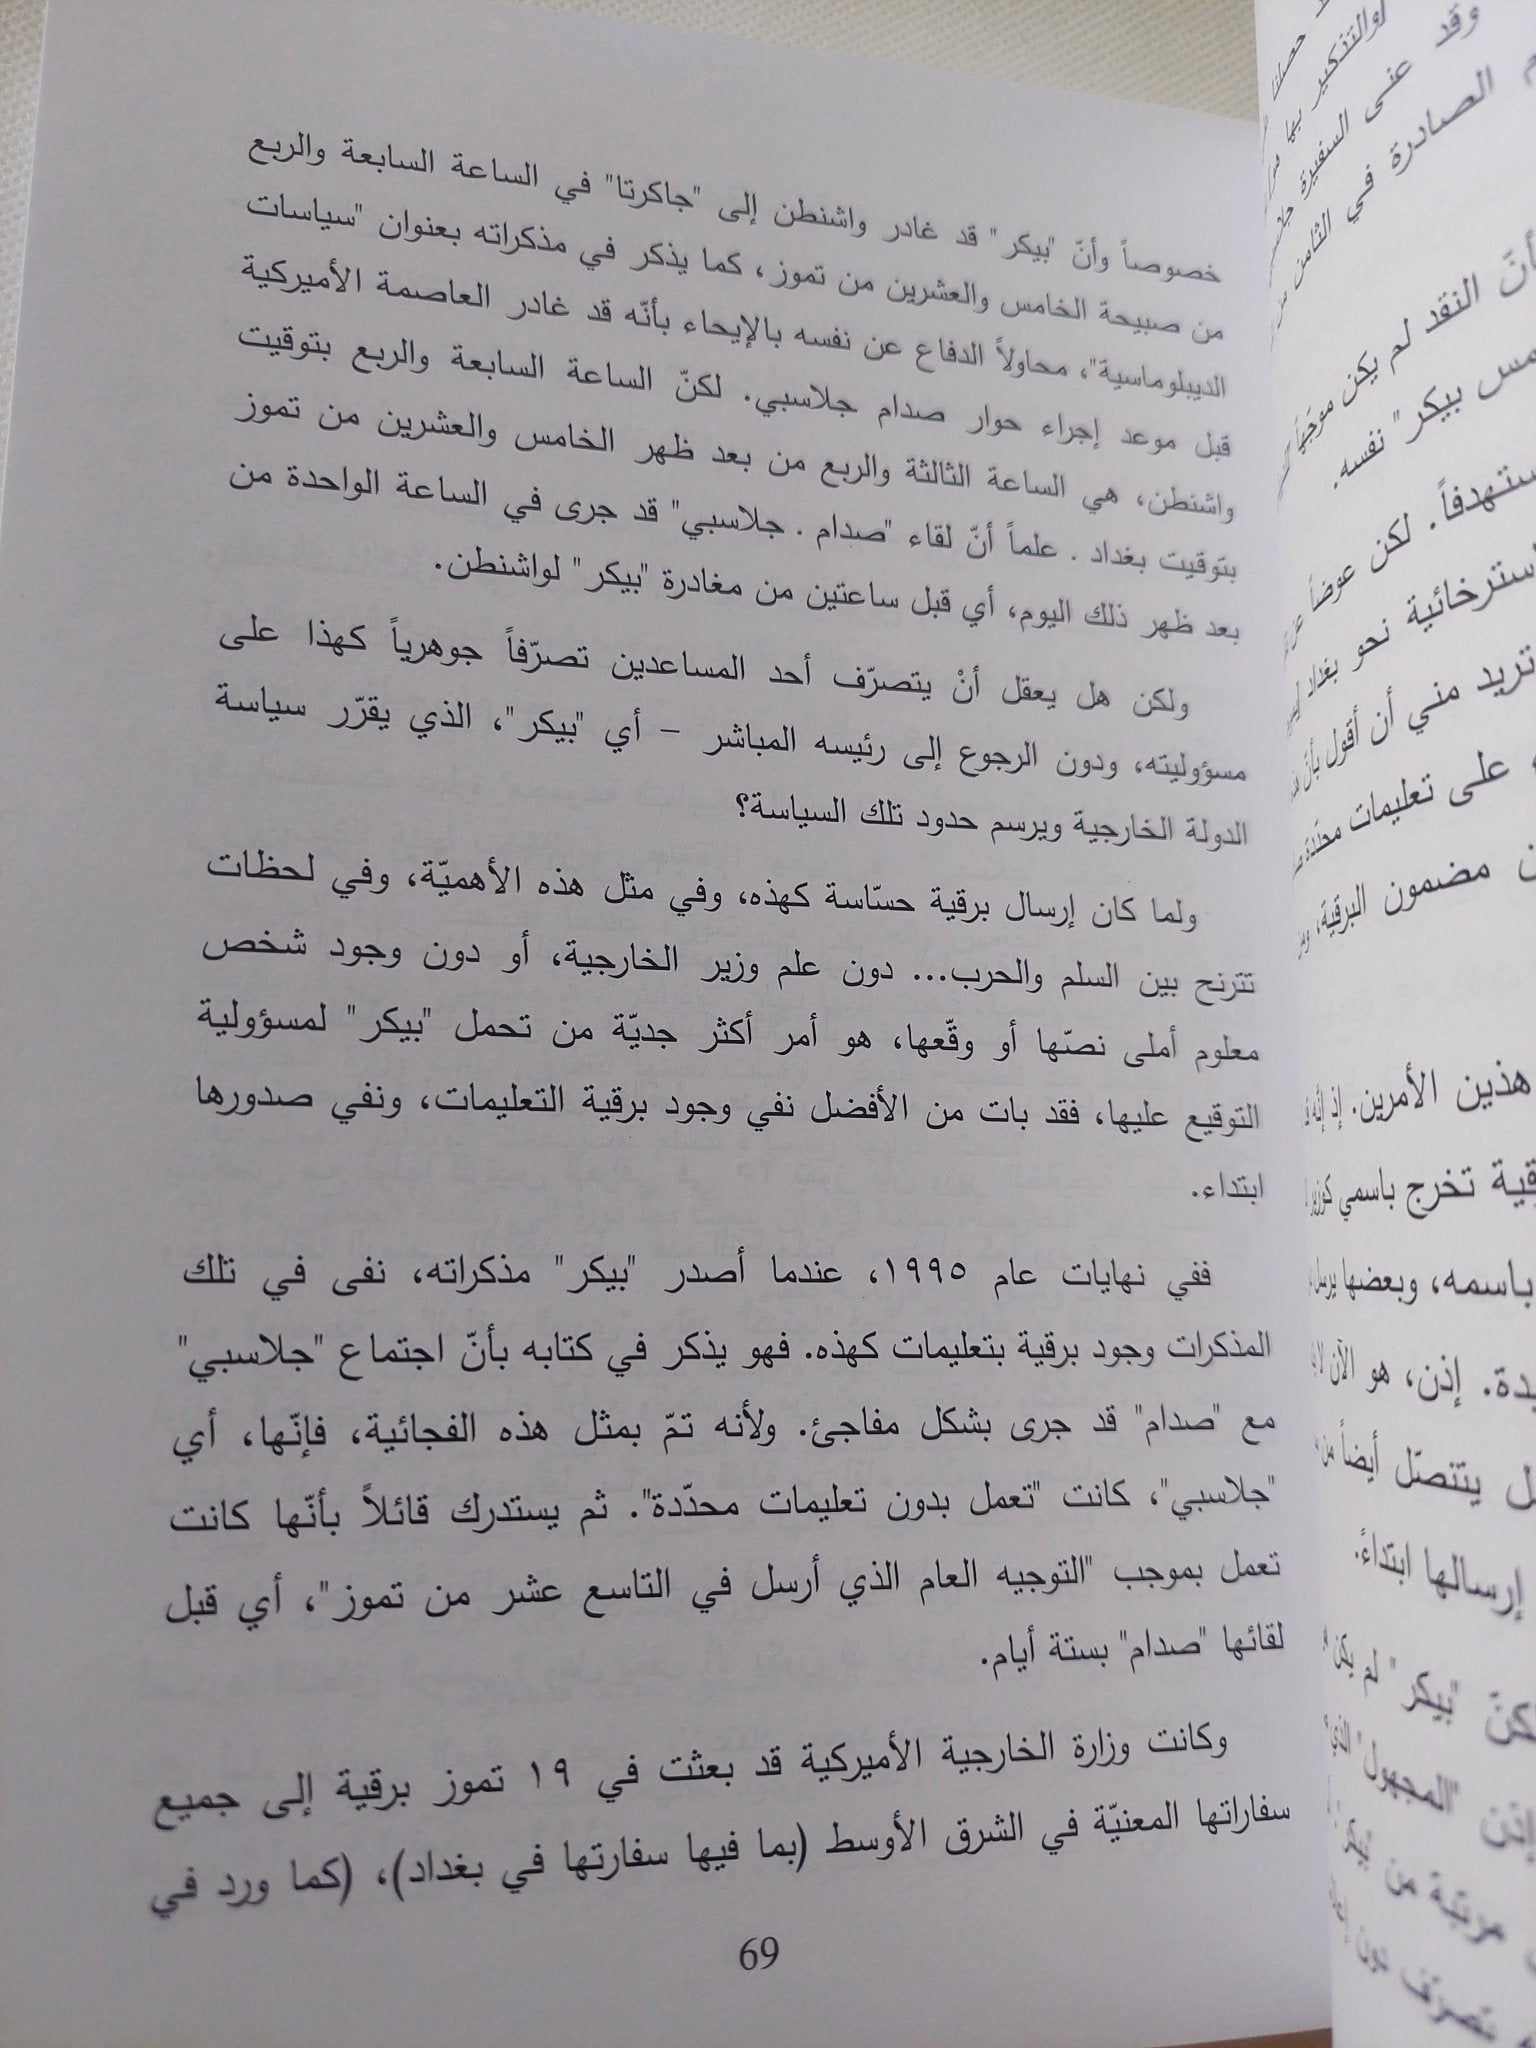 خصوصاً وأنّ "بيكر" قد غادر واشنطن إلى "جاكرتا" في الساعة السابعة والربع
من صبيحة الخامس والعشرين من تموز، كما يذكر في مذكراته بعنوان "سياسات
الديبلوماسية"، محاولاً الدفاع عن نفسه بالإيحاء بأنّه قد غادر العاصمة الأميركية
قبل موعد إجراء حوار صدام جلاسبي. لكنّ الساعة السابعة والربع بتوقيت
واشنطن، هي الساعة الثالثة والربع من بعد ظهر الخامس والعشرين من تموز
بتوقيت بغداد . علماً أنّ لقاء "صدام . جلاسبي" قد جرى في الساعة الواحدة من
بعد ظهر ذلك اليوم، أي قبل ساعتين من مغادرة "بيكر" لواشنطن.
ولكن هل يعقل أنْ يتصرّف أحد المساعدين تصرّفاً جوهرياً كهذا على
مسؤوليته، ودون الرجوع إلى رئيسه المباشر – أي "بيكر"، الذي يقرّر سياسة
الدولة الخارجية ويرسم حدود تلك السياسة؟
ولما كان إرسال برقية حسّاسة كهذه، وفي مثل هذه الأهميّة، وفي لحظات
تترنح بين السلم والحرب... دون علم وزير الخارجية، أو دون وجود شخص
معلوم أملى نصّها أو وقّعها، هو أمر أكثر جديّة من تحمل "بيكر" لمسؤولية
التوقيع عليها، فقد بات من الأفضل نفي وجود برقية التعليمات، ونفي صدورها
ابتداء.
ففي نهايات عام ١٩٩٥، عندما أصدر "بيكر" مذكراته، نفى في تلك
المذكرات وجود برقية بتعليمات كهذه. فهو يذكر في كتابه بأنّ اجتماع "جلاسبي"
مع "صدام" قد جرى بشكل مفاجئ. ولأنه تمّ بمثل هذه الفجائية، فإنّها، أي
"جلاسبي"، كانت "تعمل بدون تعليمات محدّدة". ثم يستدرك قائلاً بأنّها كانت
تعمل بموجب "التوجيه العام الذي أرسل في التاسع عشر من تموز"، أي قبل
لقائها "صدام" بستة أيام.
وكانت وزارة الخارجية الأميركية قد بعثت في ١٩ تموز برقية إلى جميع
سفاراتها المعنيّة في الشرق الأوسط (بما فيها سفارتها في بغداد)، (كما ورد في
69
وقد عنى السفيرة
الصادرة في الثامن من
أنّ النقد لم يكن موجّهاً
بيكر" نفسه.
لكن عوضاً عن
نحو بغداد
تريد مني أن أقول بأنّ
على تعليمات محدّدة
مضمون البرقية،
هذين الأمرين. إذ إنّه
تخرج باسمي كوزير
باسمه، وبعضها يرسل
إذن، هو الآن لا
يتنصّل أيضاً من
إرسالها ابتداءً.
"بيكر" لم يكن
"المجهول" الذي
من بيكر